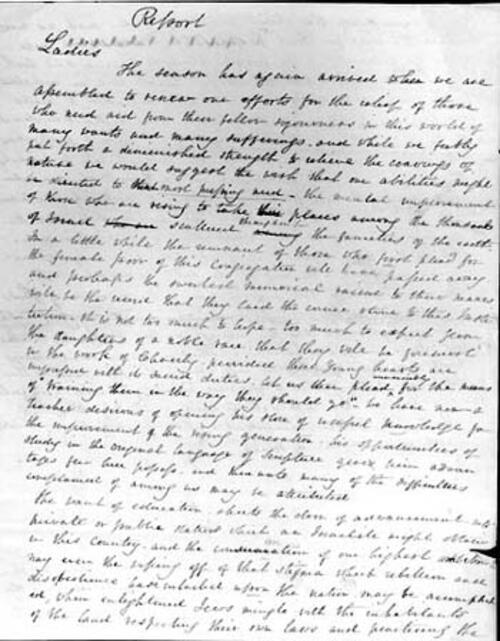 Report
Ladies
The season has again arrived when we are
assembled to renew our efforts for the relief of those
who need aid from their fellow sojourners in this world of
many wants and many sufferings. and while we feebly
put forth a diminished strength to relieve the cravings of
nature we would suggest the wish that our abilities might
be directed to their most pressing need - the mental improvement
of those who are rising to take their places among the thousands
of Israel who are scattered throughout among the families of the earth.
In a little while the remnant of those who first plead for
the female poor of this Congregation will have passed away
and perhaps the sweetest memorial raised to their manes
will be the record that they laid the corner stone to this Insti
tution. it is not too much to hope - too much to expect from
the daughters of a noble race that they will be foremost
in the work of Charity provided their young hearts are
impressed with its sacred duties, let us then plead for the means
of "training them in the way they should go" - We have now a
teacher desirous of opening his store of useful knowledge for
the improvement of the rising generation his opportunities of
study in the original language of Scripture gives him advan
tages few here possess. and many of the difficulties
complained of among us may be attributed
The want of education shuts the door of advancement
private or public stations which an Israelite might obtain
in this Country - and the consummation of our highest
may even the wiping off of that stigma which rebellion and
disobedience had entailed upon the nation may be accomplish
ed, when enlightened Jews mingle with the inhabitants
of the land respecting their own laws and practicing the